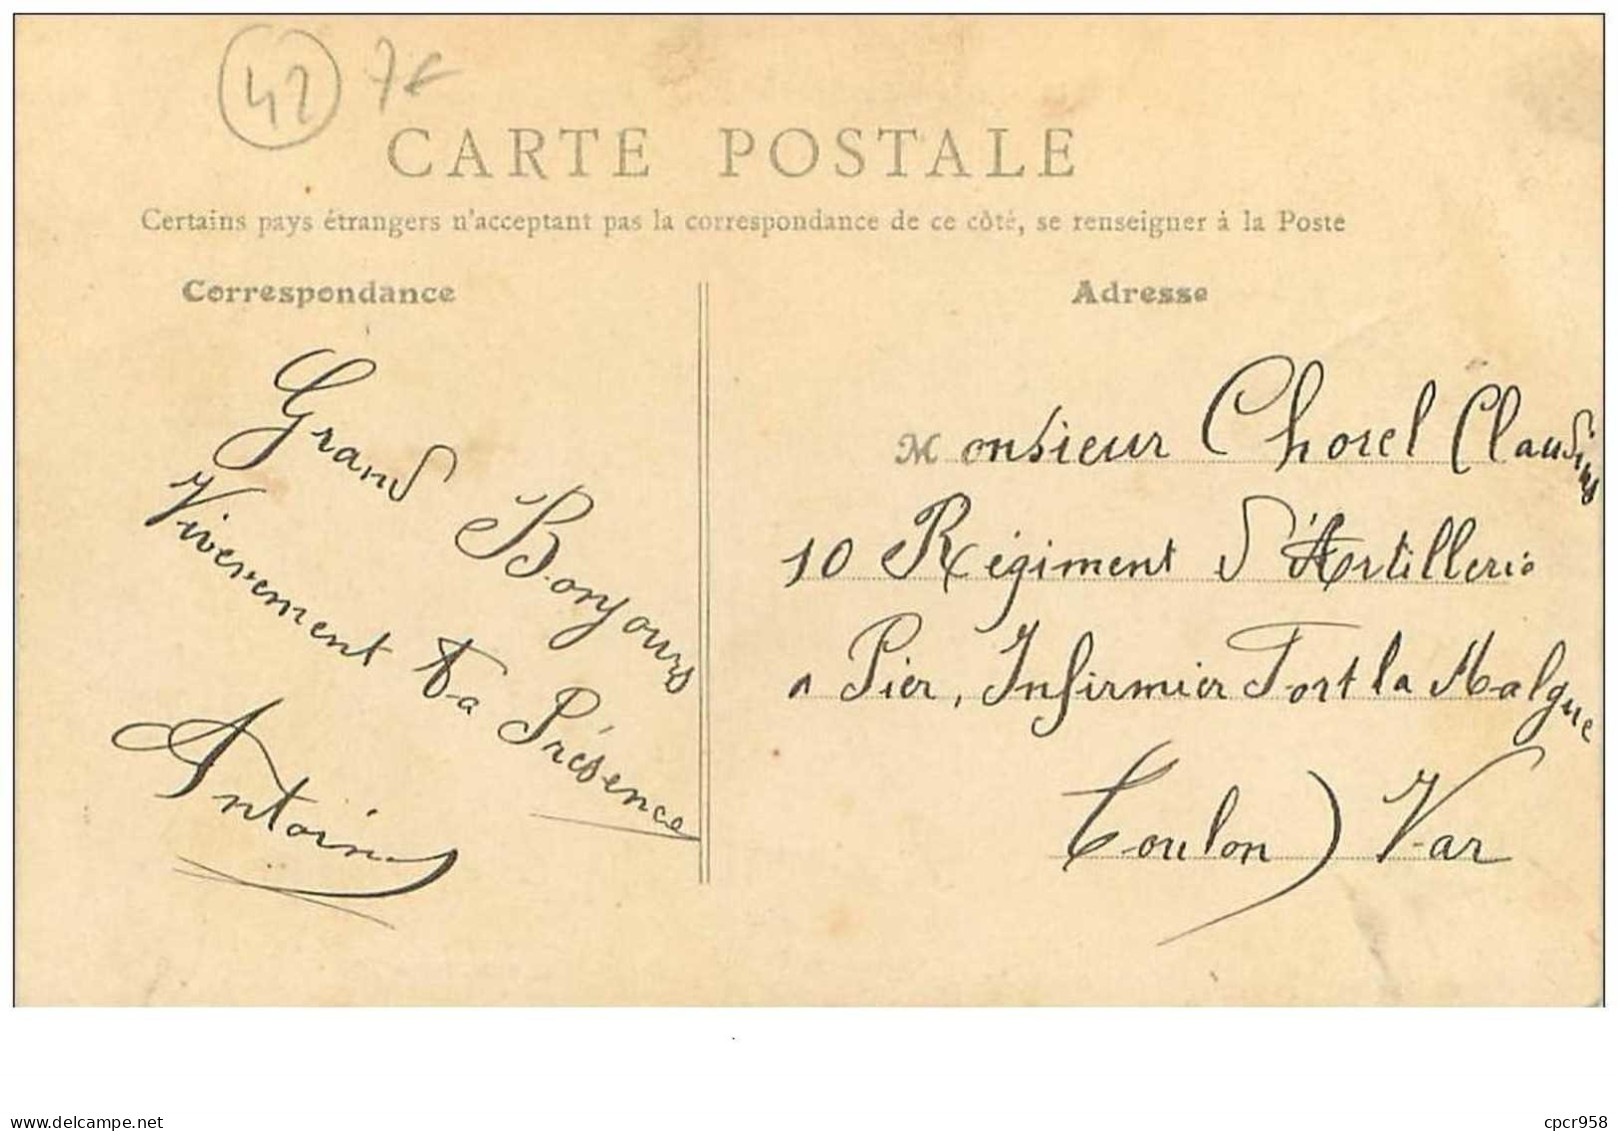 42 7€
CARTE POSTALE
Certains pays étrangers n'acceptant pas la correspondance de ce côté, se renseigner à la Poste
Correspondance
Grand Bonjours
Vivement ta Présence
Antoine
Adresse
Monsieur Chorel Claudius
10 Régiment d'Artillerie
a Pier, Infirmier Fort la Malgue
Toulon) Var
www.delcampe.net
cpcr958